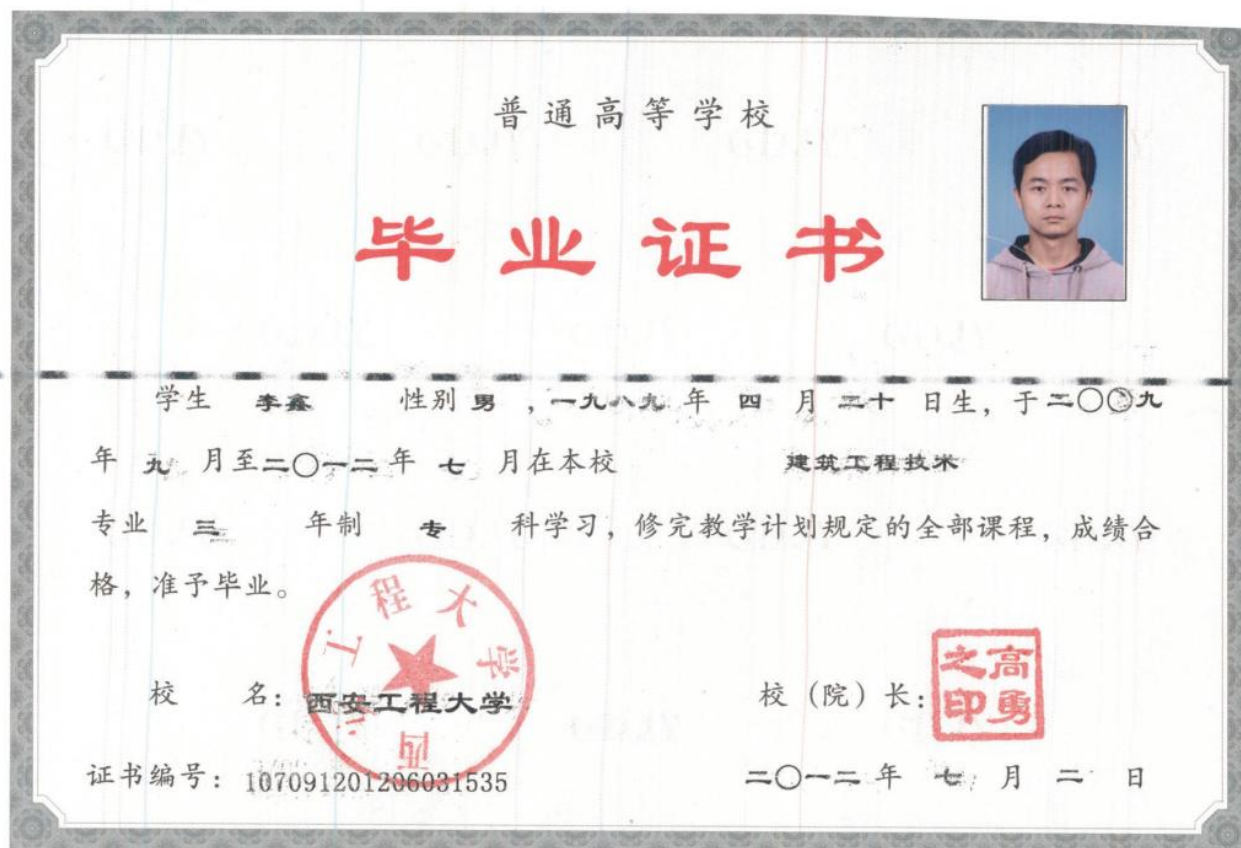 普通高等学校
毕业证书
学生 李鑫 性别 男 ,一九八九 年 四 月 二十 日生，于二〇〇九
年 九 月至二〇一二年 七 月在本校 建筑工程技术
专业 三 年制 专 科学习，修完教学计划规定的全部课程，成绩合
格，准予毕业。
西安工程大学
校 名：西安工程大学
校（院）长：
高勇之印
证书编号：107091201206031535
二〇一二 年 七 月 二 日